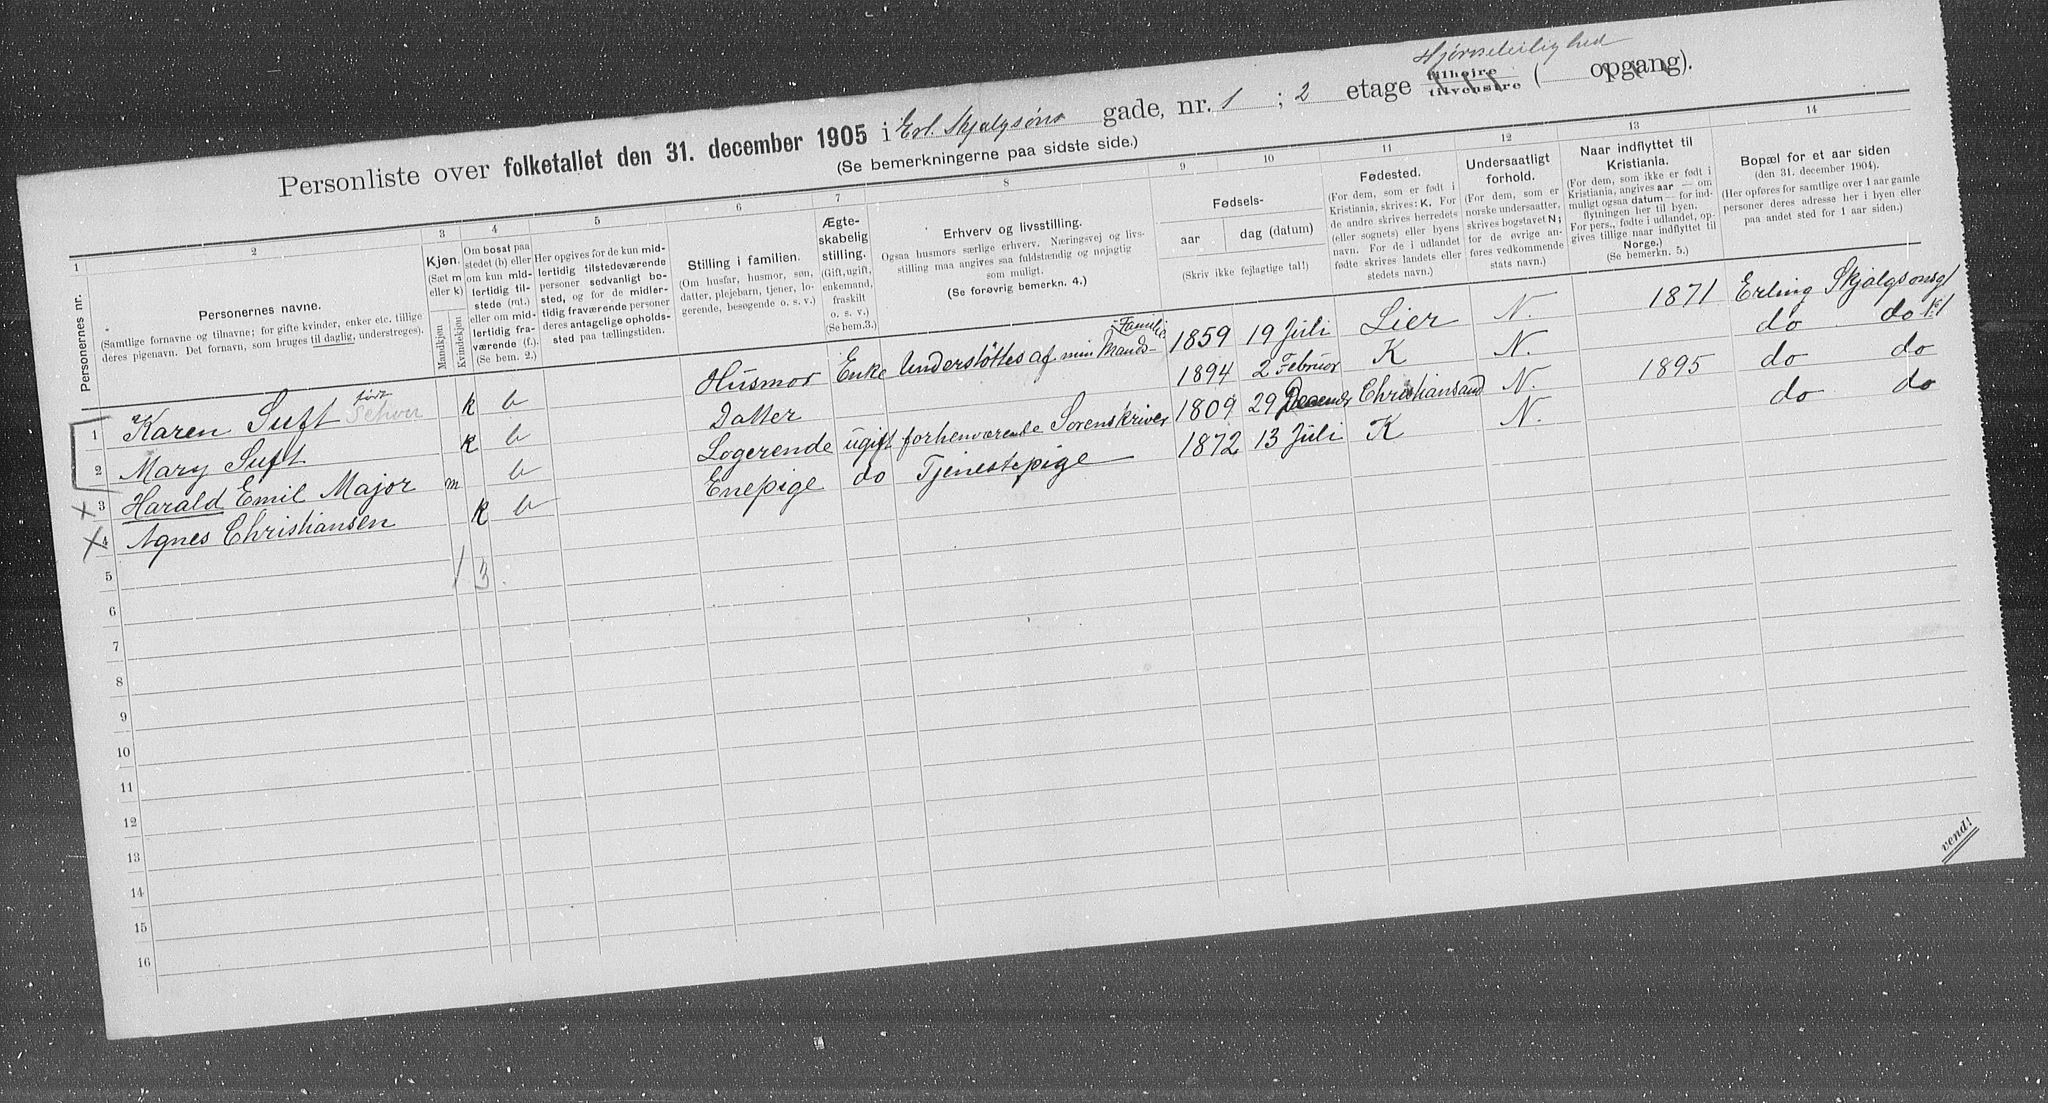 Hjørneleilighed
Personliste over folketallet den 31. december 1905 i Erl. Skjalgsøns gade, nr. 1 ; 2 etage tilhøire tilvenstre ( opgang).
(Se bemerkningerne paa sidste side.)
1 2 3 4 5 6 7 8 9 10 11 12 13 14
Personernes nr.
Personernes navne.
(Samtlige fornavne og tilnavne; for gifte kvinder, enker etc. tillige
deres pigenavn. Det fornavn, som bruges til daglig, understreges).
Kjøn.
(Sæt m
eller k)
Mandkjøn
Kvindekjøn
Om bosat paa
stedet (b) eller
om kun mid-
lertidig til-
stede (mt.)
eller om mid-
lertidig fra-
værende (f.).
(Se bem. 2.)
Her opgives for de kun mid-
lertidig tilstedeværende
personer sedvanligt bo-
sted, og for de midler-
tidig fraværende personer
deres antagelige opholds-
sted paa tællingstiden.
Stilling i familien.
(Om husfar, husmor, søn,
datter, plejebarn, tjener, lo-
gerende, besøgende o. s. v.)
Ægte-
skabelig
stilling.
(Gift, ugift,
enkemand,
fraskilt
o. s. v.)
(Se bem.3.)
Erhverv og livsstilling.
Ogsaa husmors særlige erhverv. Næringsvej og livs-
stilling maa angives saa fuldstændig og nøjagtig
som muligt.
(Se forøvrig bemerkn. 4.)
Fødsels-
aar dag (datum)
(Skriv ikke fejlagtige tal!)
Fødested.
(For dem, som er født i
Kristiania, skrives: K. For
de andre skrives herredets
(eller sognets) eller byens
navn. For de i udlandet
fødte skrives landets eller
stedets navn.)
Undersaatligt
forhold.
(For dem, som er
norske undersaatter,
skrives bogstavet N;
for de øvrige an-
føres vedkommende
stats navn.)
Naar indflyttet til
Kristiania.
(For dem, som ikke er født i
Kristiania, angives aar — om
muligt ogsaa datum — for ind-
flytningen her til byen.
For pers., fødte i udlandet, op-
gives tillige naar indflyttet til
Norge.)
(Se bemerkn. 5.)
Bopæl for et aar siden
(den 31. december 1904).
(Her opføres for samtlige over 1 aar gamle
personer deres adresse her i byen eller
paa andet sted for 1 aar siden.)
1 Karen Suft født k b Husmor Enke Understøttes af min Mands Familie 1859 19 Juli Lier N. 1871 Erling Skjalgsonsg 1
2 Mary Suft k b Datter 1894 2 Februar K N. do do
3 Harald Emil Major m b Logerende ugift forhenværende Sorenskriver 1809 29 Decender Christiansand N. 1895 do do
4 Agnes Christiansen k b Enepige do Tjenestepige 1872 13 Juli K N. do do
1 3
5
6
7
8
9
10
11
12
13
14
15
16
vend!